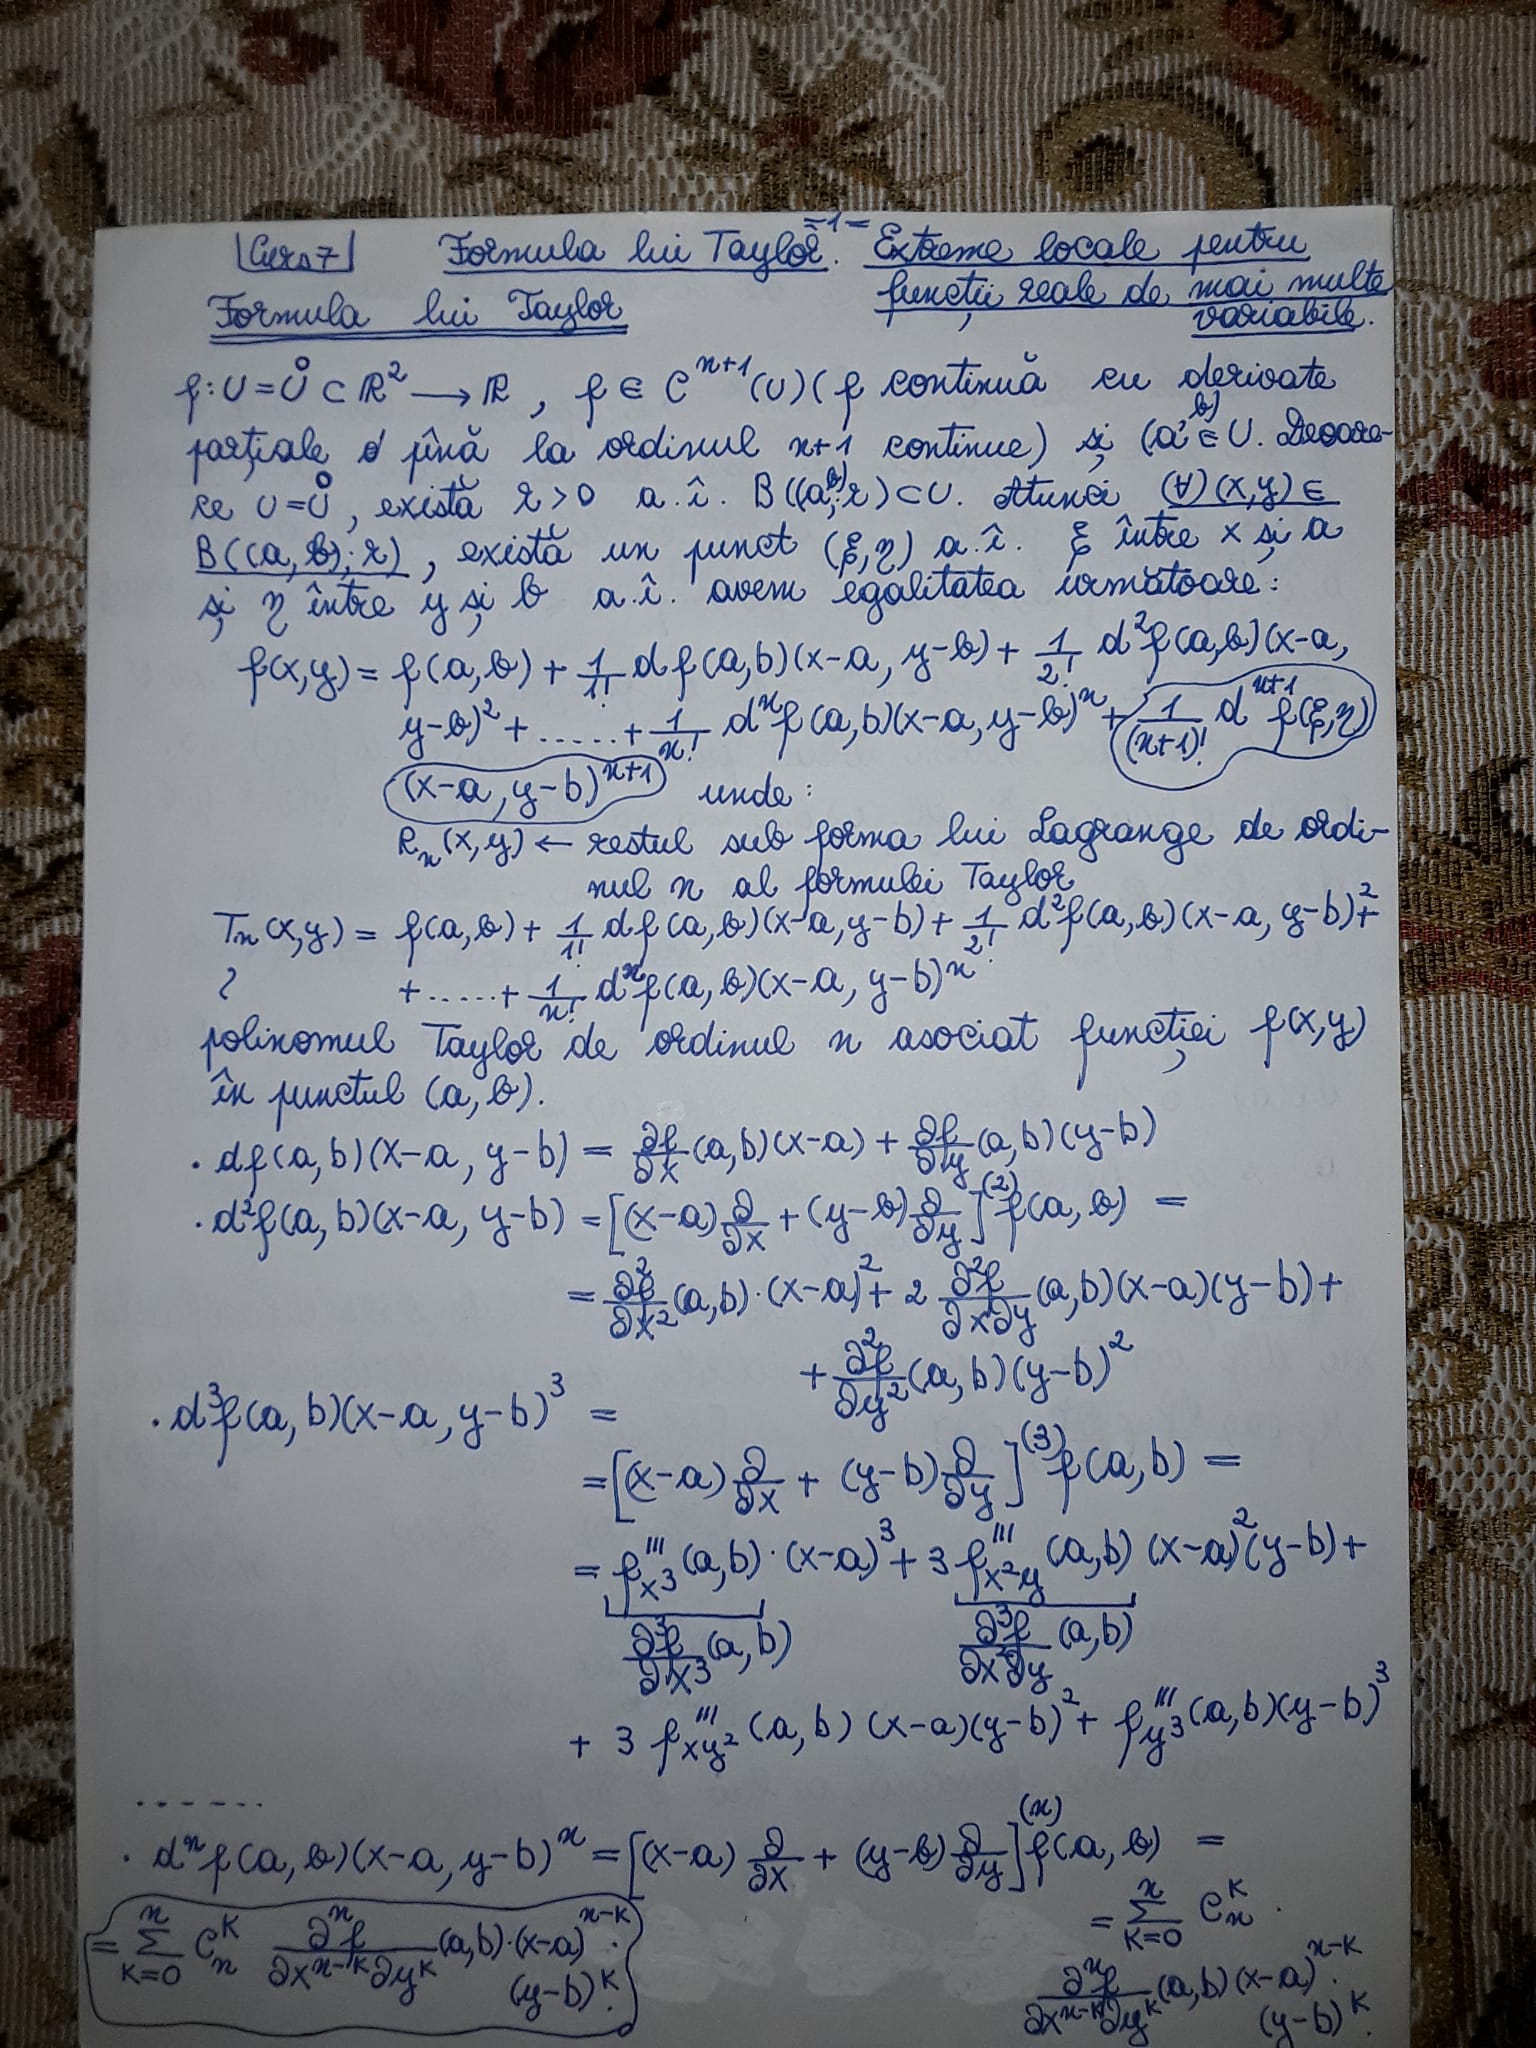 =1=
Curs 7 Formula lui Taylor. Extreme locale pentru
funcții reale de mai multe
Formula lui Taylor variabile.
f: U = Ů ⊂ ℝ² → ℝ, f ∈ C^{n+1}(U) (f continuă cu derivate
parțiale pînă la ordinul n+1 continue) și (a, b) ∈ U. Deoare-
ce U = Ů, există r > 0 a.î. B((a, b); r) ⊂ U. Atunci (∀)(x, y) ∈
B((a, b); r), există un punct (ξ, η) a.î. ξ între x și a
și η între y și b a.î. avem egalitatea următoare:
f(x, y) = f(a, b) + 1/1! df(a, b)(x-a, y-b) + 1/2! d²f(a, b)(x-a,
y-b)² + ...... + 1/n! dⁿf(a, b)(x-a, y-b)ⁿ + 1/(n+1)! d^{n+1} f(ξ, η)
(x-a, y-b)^{n+1} unde:
Rₙ(x, y) ← restul sub forma lui Lagrange de ordi-
nul n al formulei Taylor
Tₙ(x, y) = f(a, b) + 1/1! df(a, b)(x-a, y-b) + 1/2! d²f(a, b)(x-a, y-b)² +
+ ...... + 1/n! dⁿf(a, b)(x-a, y-b)ⁿ
polinomul Taylor de ordinul n asociat funcției f(x, y)
în punctul (a, b).
. df(a, b)(x-a, y-b) = ∂f/∂x (a, b)(x-a) + ∂f/∂y (a, b)(y-b)
. d²f(a, b)(x-a, y-b) = [(x-a) ∂/∂x + (y-b) ∂/∂y]^{(2)} f(a, b) =
= ∂²f/∂x² (a, b)·(x-a)² + 2 ∂²f/∂x∂y (a, b)(x-a)(y-b) +
+ ∂²f/∂y² (a, b)(y-b)²
. d³f(a, b)(x-a, y-b)³ =
= [(x-a) ∂/∂x + (y-b) ∂/∂y]^{(3)} f(a, b) =
= f'''_{x³}(a, b)·(x-a)³ + 3 f'''_{x²y}(a, b)(x-a)²(y-b) +
∂³f/∂x³ (a, b) ∂³f/∂x²∂y (a, b)
+ 3 f'''_{xy²}(a, b)(x-a)(y-b)² + f'''_{y³}(a, b)(y-b)³
.......
. dⁿf(a, b)(x-a, y-b)ⁿ = [(x-a) ∂/∂x + (y-b) ∂/∂y]^{(n)} f(a, b) =
= Σ_{k=0}^{n} C_n^k ·
∂ⁿf/∂x^{n-k}∂y^k (a, b)(x-a)^{n-k} ·
(y-b)^k.
= Σ_{k=0}^{n} C_n^k ∂ⁿf/∂x^{n-k}∂y^k (a, b)·(x-a)^{n-k} ·
(y-b)^k.